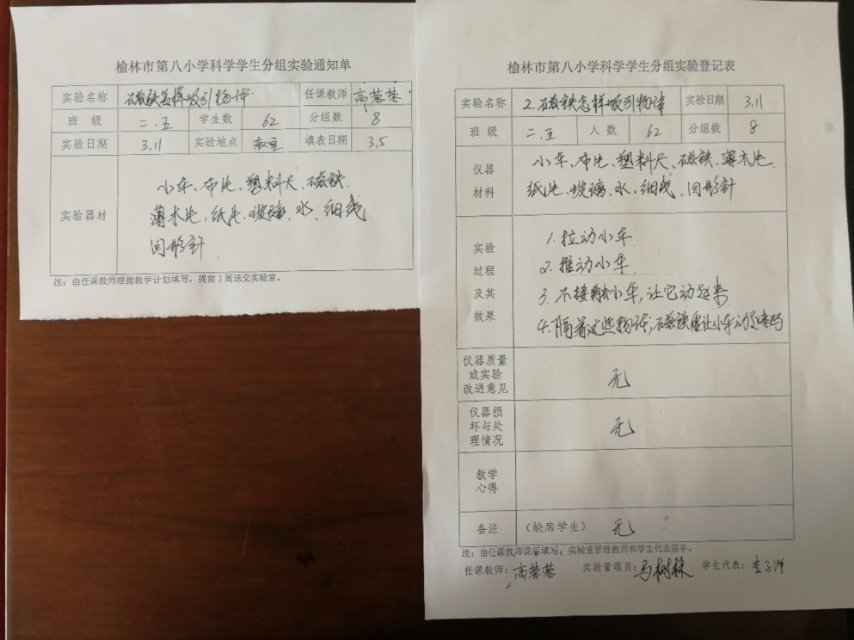 榆林市第八小学科学学生分组实验通知单
实验名称 磁铁怎样吸引物体 任课教师 高蓉蓉
班 级 二.五 学生数 62 分组数 8
实验日期 3.11 实验地点 教室 填表日期 3.5
实验器材
小车、布片、塑料尺、磁铁、
薄木片、纸片、玻璃、水、细线
回形针
注：由任课教师根据教学计划填写，提前1周送交实验室。
榆林市第八小学科学学生分组实验登记表
实验名称 2.磁铁怎样吸引物体 实验日期 3.11
班 级 二.五 人 数 62 分组数 8
仪器
材料
小车、布片、塑料尺、磁铁、薄木片、
纸片、玻璃、水、细线、回形针
实验
过程
及其
效果
1.拉动小车
2.推动小车
3.不接触小车,让它动起来
4.隔着这些物体,磁铁能让小车动起来吗
仪器质量
或实验
改进意见
无
仪器损
坏与处
理情况
无
教学
心得
备注 （缺席学生） 无
注：由任课教师课后填写，实验室管理教师和学生代表签字。
任课教师：高蓉蓉 实验管理员：马树林 学生代表：李